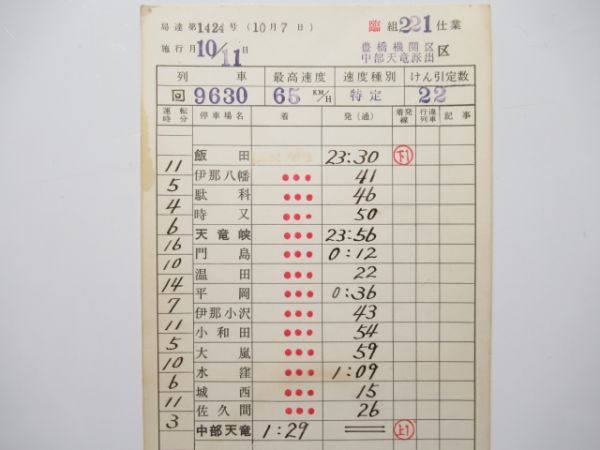 局達第1424号(10月7日) 臨組221仕業
施行月10/11日 豊橋機関区
中部天竜派出 区
列車 最高速度 速度種別 けん引定数
回 9630 65 KM/H 特定 22
運転時分 停車場名 着 発(通) 着発線 行違列車 記事
飯田 23:30 下1
11
伊那八幡 ●●● 41
5
駄科 ●●● 46
4
時又 ●●● 50
6
天竜峡 ●●● 23:56
16
門島 ●●● 0:12
10
温田 ●●● 22
14
平岡 ●●● 0:36
7
伊那小沢 ●●● 43
11
小和田 ●●● 54
5
大嵐 ●●● 59
10
水窪 ●●● 1:09
6
城西 ●●● 15
11
佐久間 ●●● 26
3
中部天竜 1:29 上1